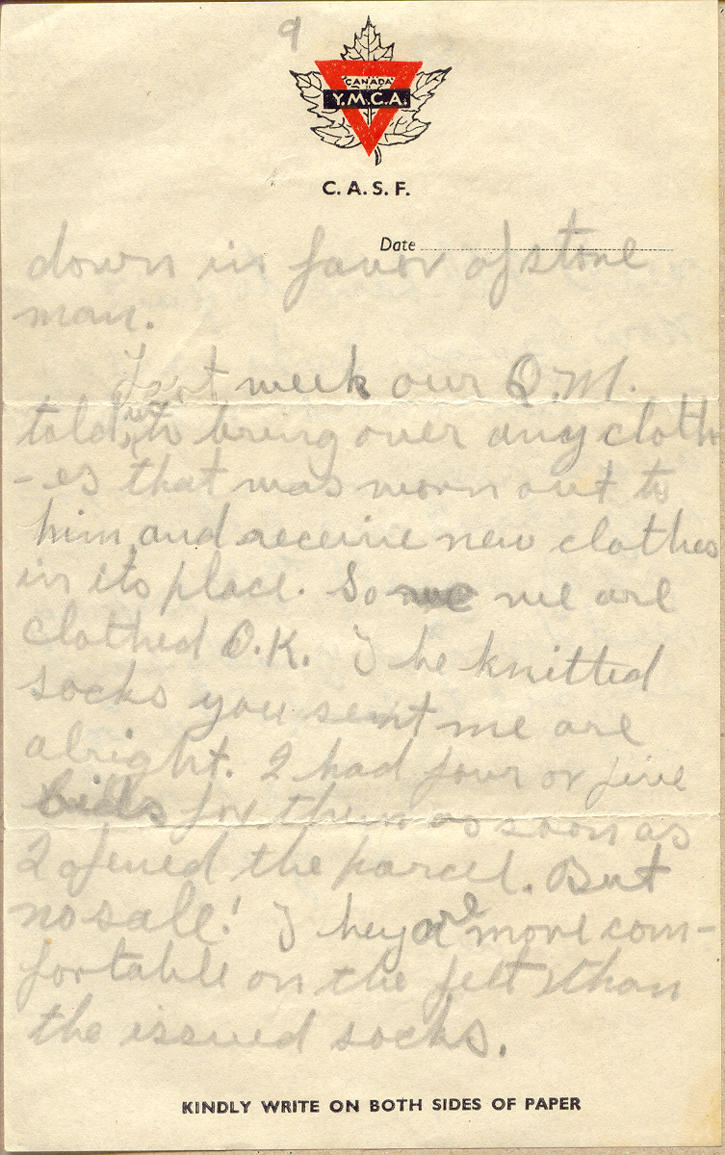 9
CANADA
Y.M.C.A.
C. A. S. F.
Date
down in favor of stone
man.
Last week our Q.M.
told us to bring over any cloth
-es that was worn out to
him and receive new clothes
in its place. So we are
clothed O.K. The knitted
socks you sent me are
alright. I had four or five
bids for them as soon as
I opened the parcel. But
no sale! They are more com-
fortable on the feet than
the issued socks.
KINDLY WRITE ON BOTH SIDES OF PAPER